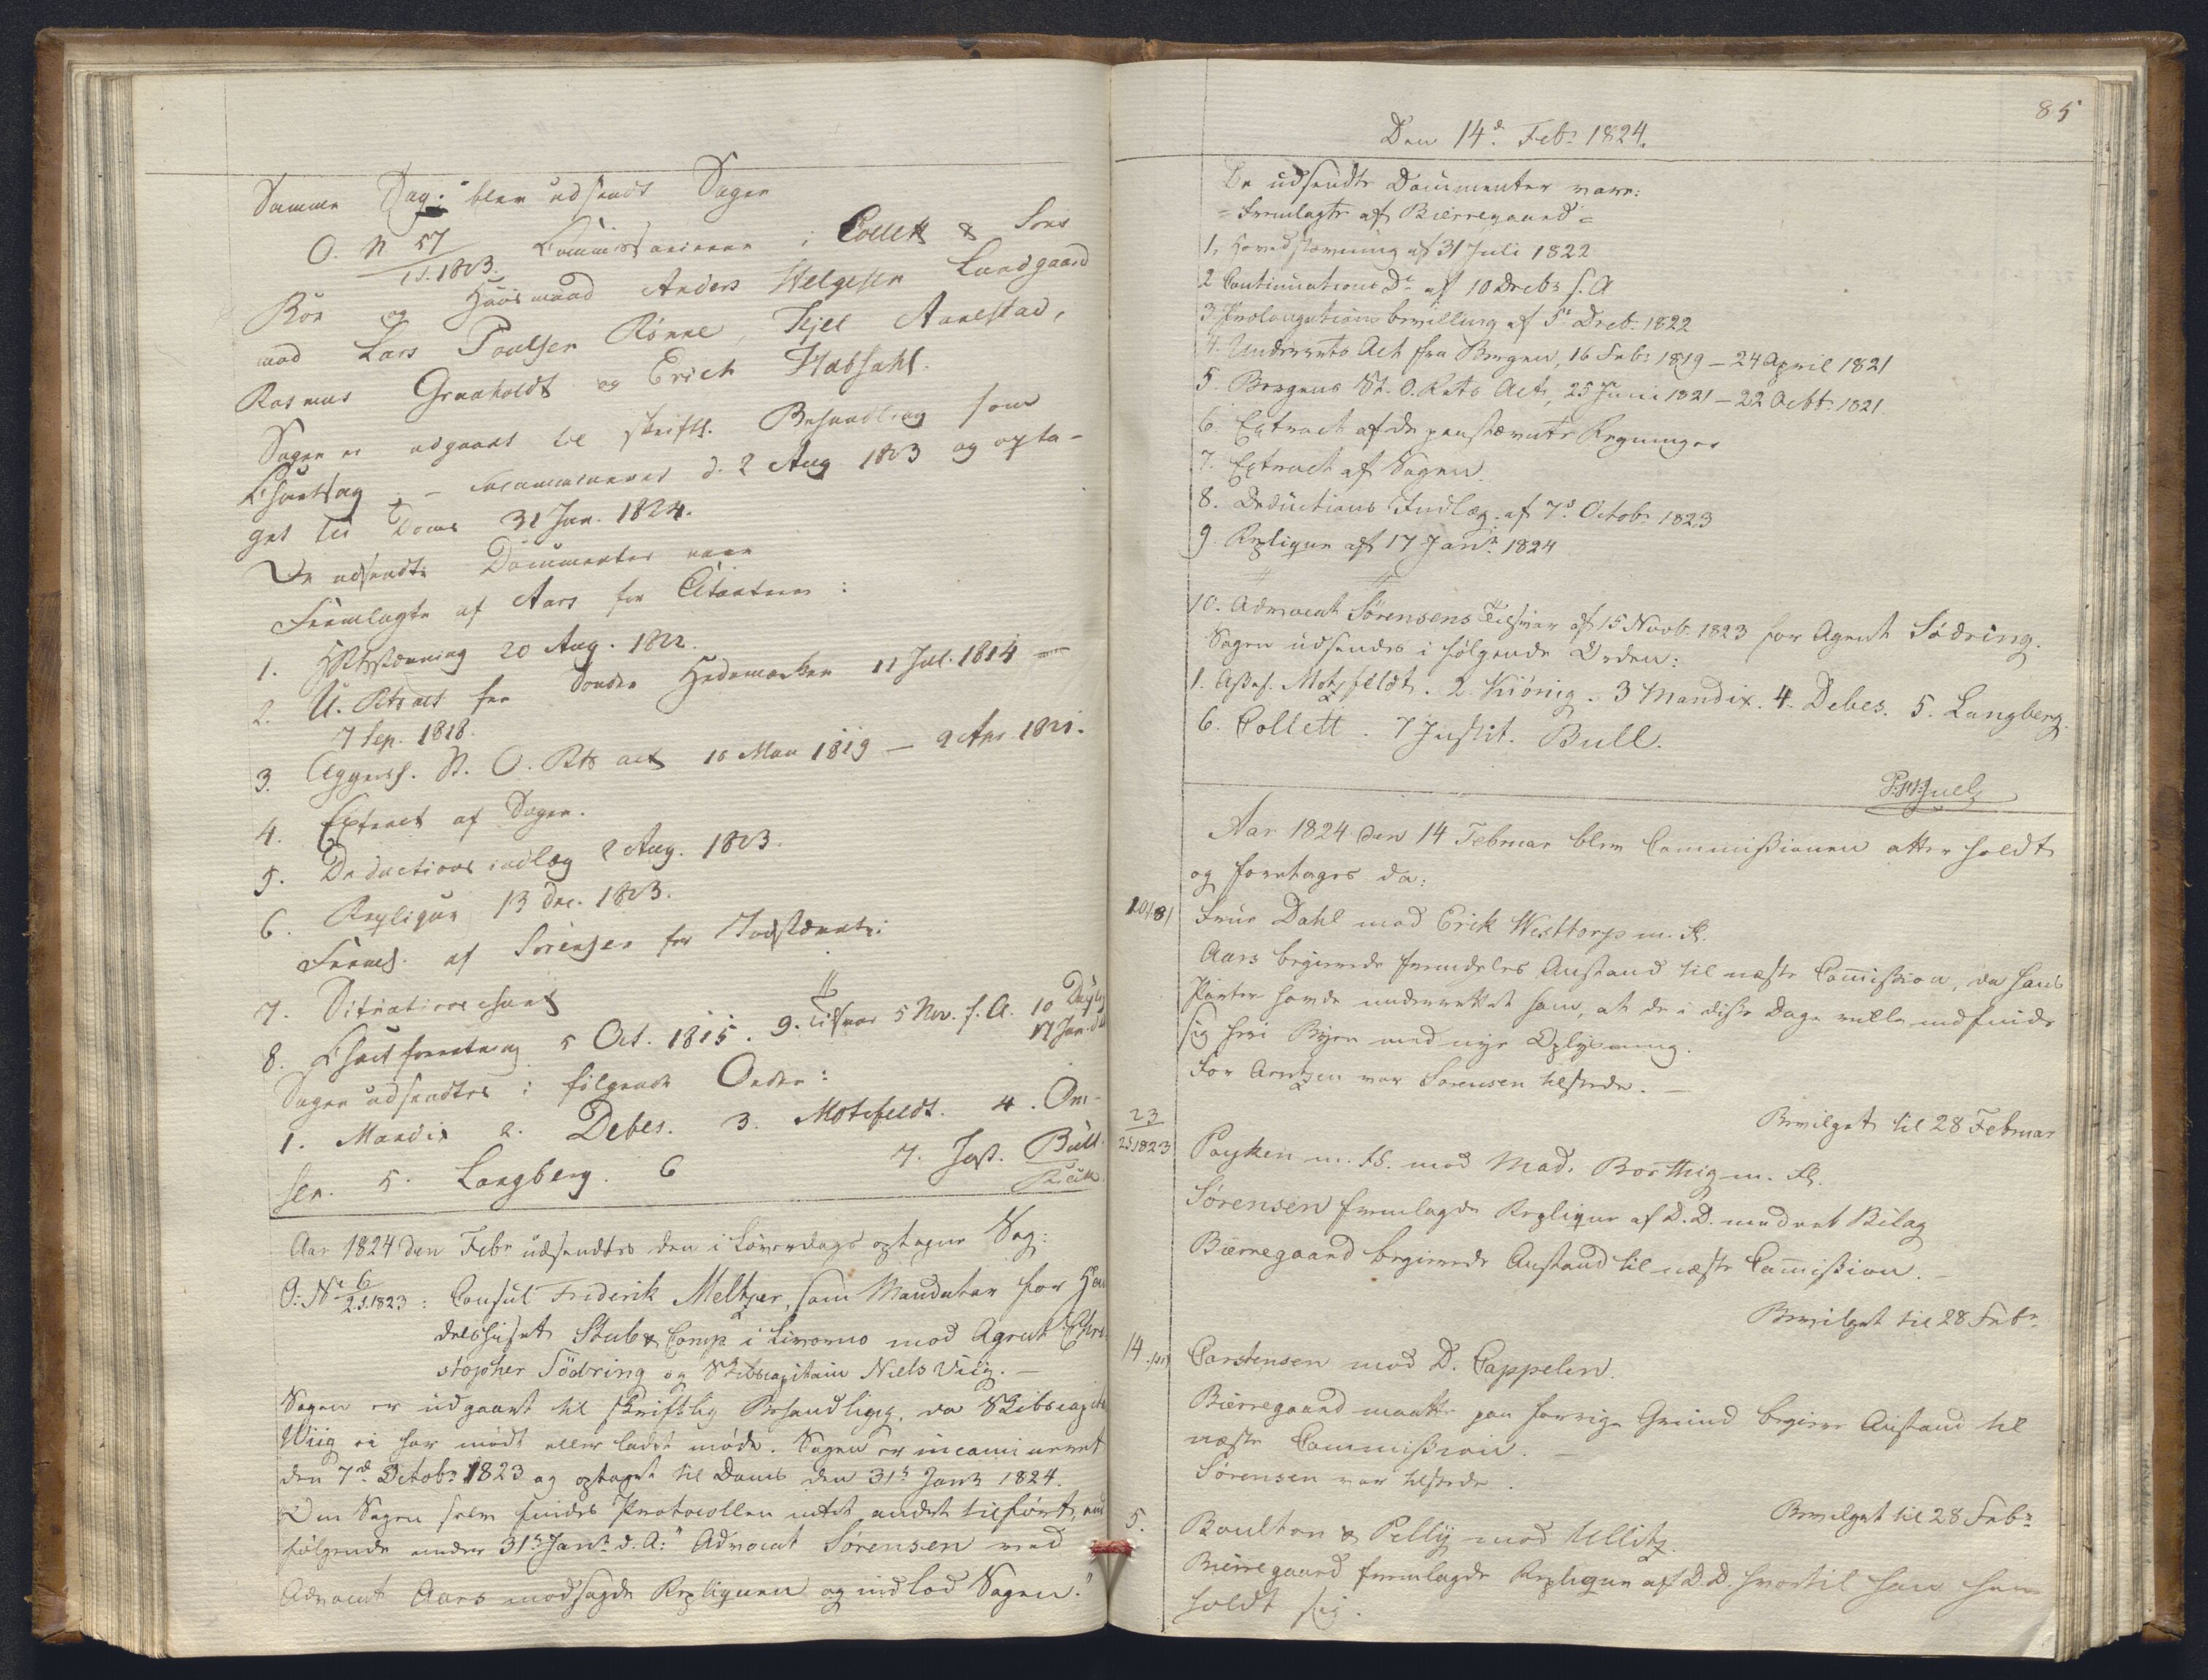 Samme Dag blev udsendt Sagen
O. N 57 / 1.S.1823. Commissairerne i Collett & Søns
Boe og Huusmand Anders Helgesen Lundgaard
mod Lars Poulsen Rønne, Kjel Aarestad,
Rasmus Graaholdt og Erich Habsahl.
Sagen er udgaaet til skriftl. Behandling som
- incamineret d. 2 Aug 1823 og opta-
get til Doms 31 Jan. 1824.
De udsendte Documenter vare
Fremlagte af Aars for Citanterne:
1. HRtsstævning 20 Aug. 1822.
2. U. Rets act fra Hedemarken 11 Jul. 1814 —
7 Sep. 1818.
3. Aggersh. St. O. Rts act 10 Mai 1819 — 9 Apr 1821.
4. Extract af Sagen.
5. Deductions indlæg 2 Aug. 1823.
6. Replique 13 Dec. 1823.
Freml. af Sørensen for Indstævnte:
7. Situations chart
8. forretning 5 Oct. 1815. 9. Tilsvar 5 Nov. f. A. 10
17 Jan.
Sagen udsendtes i følgende Orden:
1. Mandix 2. Debes. 3. Motzfeldt. 4. Om-
sen. 5. Langberg. 6 7. Just. Bull.
Aar 1824 den Febr udsendtes den i Løverdags optagne Sag:
O: No 6 / 2.S.1823: Consul Friderik Meltzer, som Mandatar for Han
delshuset Stub & Comp i Livorno mod Agent Chri
stopher Södring og Skibscapitain Niels Viig. —
Sagen er udgaaet til skriftlig Behandling, da Skibscapit
Wiig ei har mødt eller ladet møde. Sagen er incamineret
den 7d Octobr 1823 og optaget til Doms den 31t Janr 1824.
Om Sagen selv findes Protocollen intet andet tilført, end
følgende under 31t Janr d. A: "Advocat Sørensen ved
Advocat Aars modsagde Repliquen og indlod Sagen."
85
Den 14d Febr 1824.
De udsendte Documenter vare:
= Fremlagte af Bierregaard =
1, Hovedstævning af 31 Juli 1822
2 Continuations Do af 10 Decbr s. A
3 Prolongations bevilling af 5t Decb. 1822
4. Underrets Act fra Bergen, 16 Febr 1819 — 24 April 1821
5. Bergens St. O. Rets Act, 25 Juni 1821 — 22 Octbr 1821.
6. Extract af de paastævnte Regninger
7. Extract af Sagen.
8. Deductions Indlæg af 7d Octobr 1823
9. Replique af 17 Janr 1824
10. Advocat Sørensens Tilsvar af 15 Novb. 1823 for Agent Södring.
Sagen udsendes i følgende Orden:
1. Assess. Motzfeldt. 2. Kiönig. 3 Mandix. 4. Debes. 5. Langberg.
6. Collett. 7 Justit. Bull.
Aar 1824 den 14 Februar blev Commissionen atter holdt
og foretages da:
Frue Dahl mod Erik Westtorp m. fl.
Aars begierede fremdeles Anstand til næste Commission, da hans
Parter havde underrettet ham, at de i disse Dage ville indfinde
sig her i Byen med nye Oplysning.
For Arntzen var Sørensen tilstede. —
Bevilget til 28 Februar
23 / 2S1823 Payken m. fl. mod Mad. Borthig m. fl.
Sørensen fremlagde Replique af D. D. med eet Bilag
Bierregaard begierede Anstand til næste Commission. —
Bevilget til 28 Febr
14. Carstensen mod D. Cappelen.
Bierregaard maatte paa forrige Grund begiere Anstand til
næste Commission. —
Sørensen var tilstede.
Bevilget til 28 Febr
5. Boulton & Pelly mod Ullitz.
Bierregaard fremlagde Replique af D. D. hvortil han hen-
holdt sig.